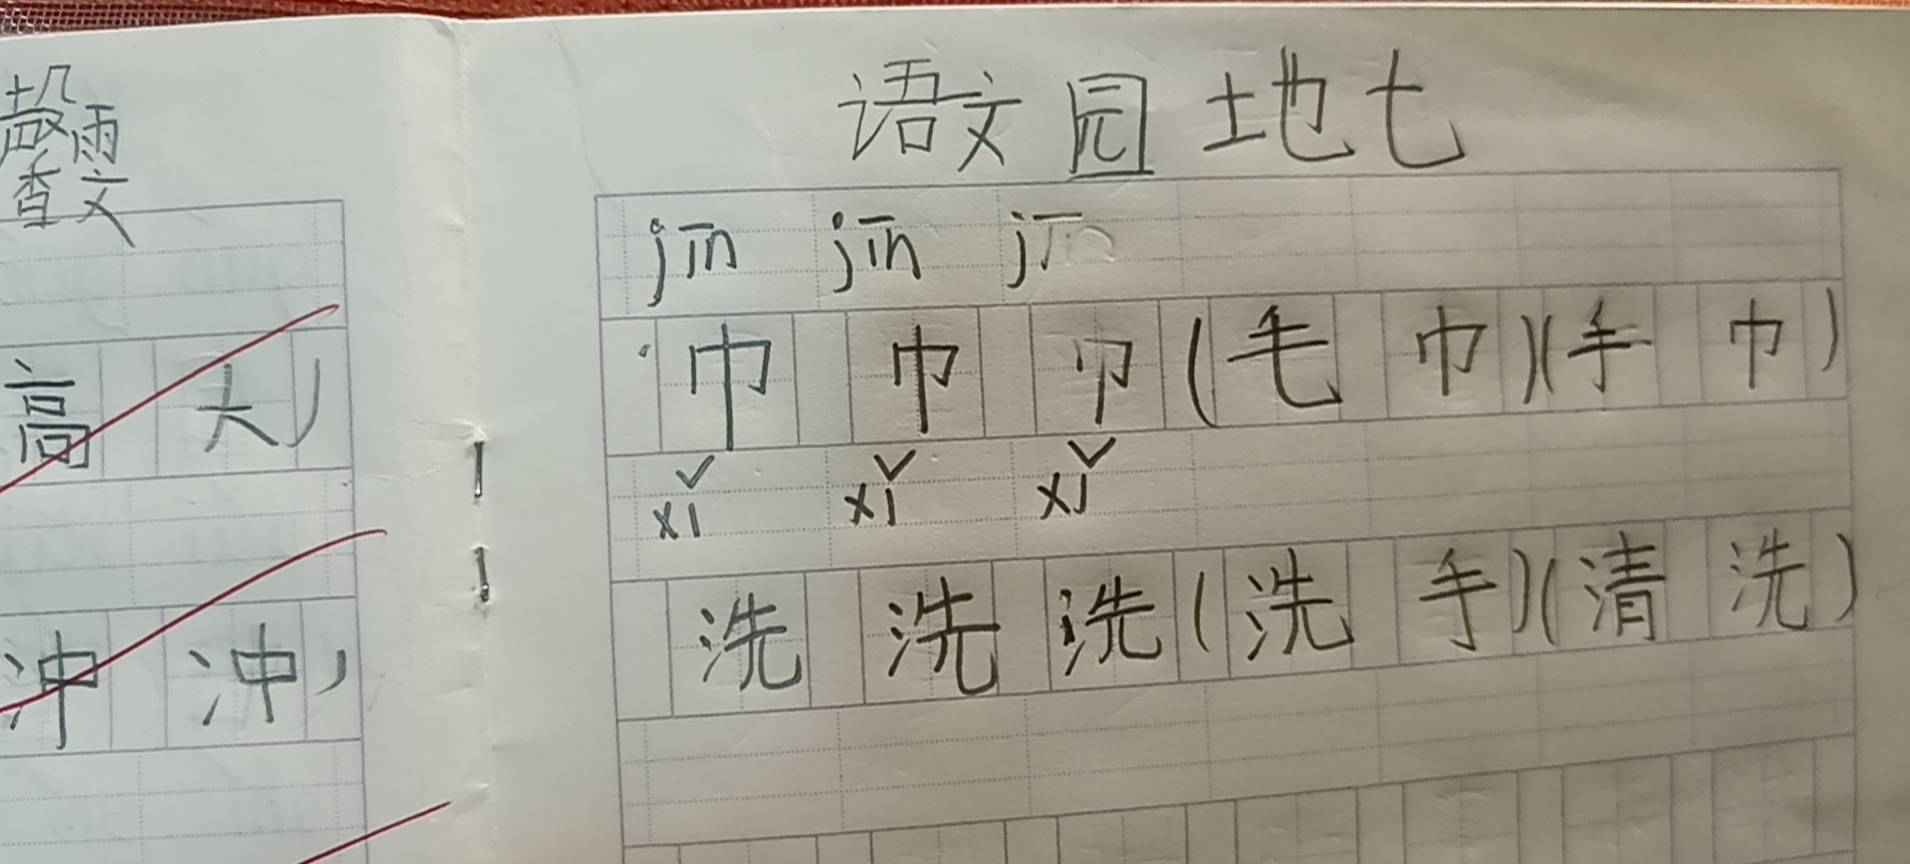 语文园地七
jīn jīn jīn
巾 巾 巾 (毛 巾)(手 巾)
xǐ xǐ xǐ
洗 洗 洗 (洗 手)(清 洗)
雨
香文
高 大)
冲 冲)